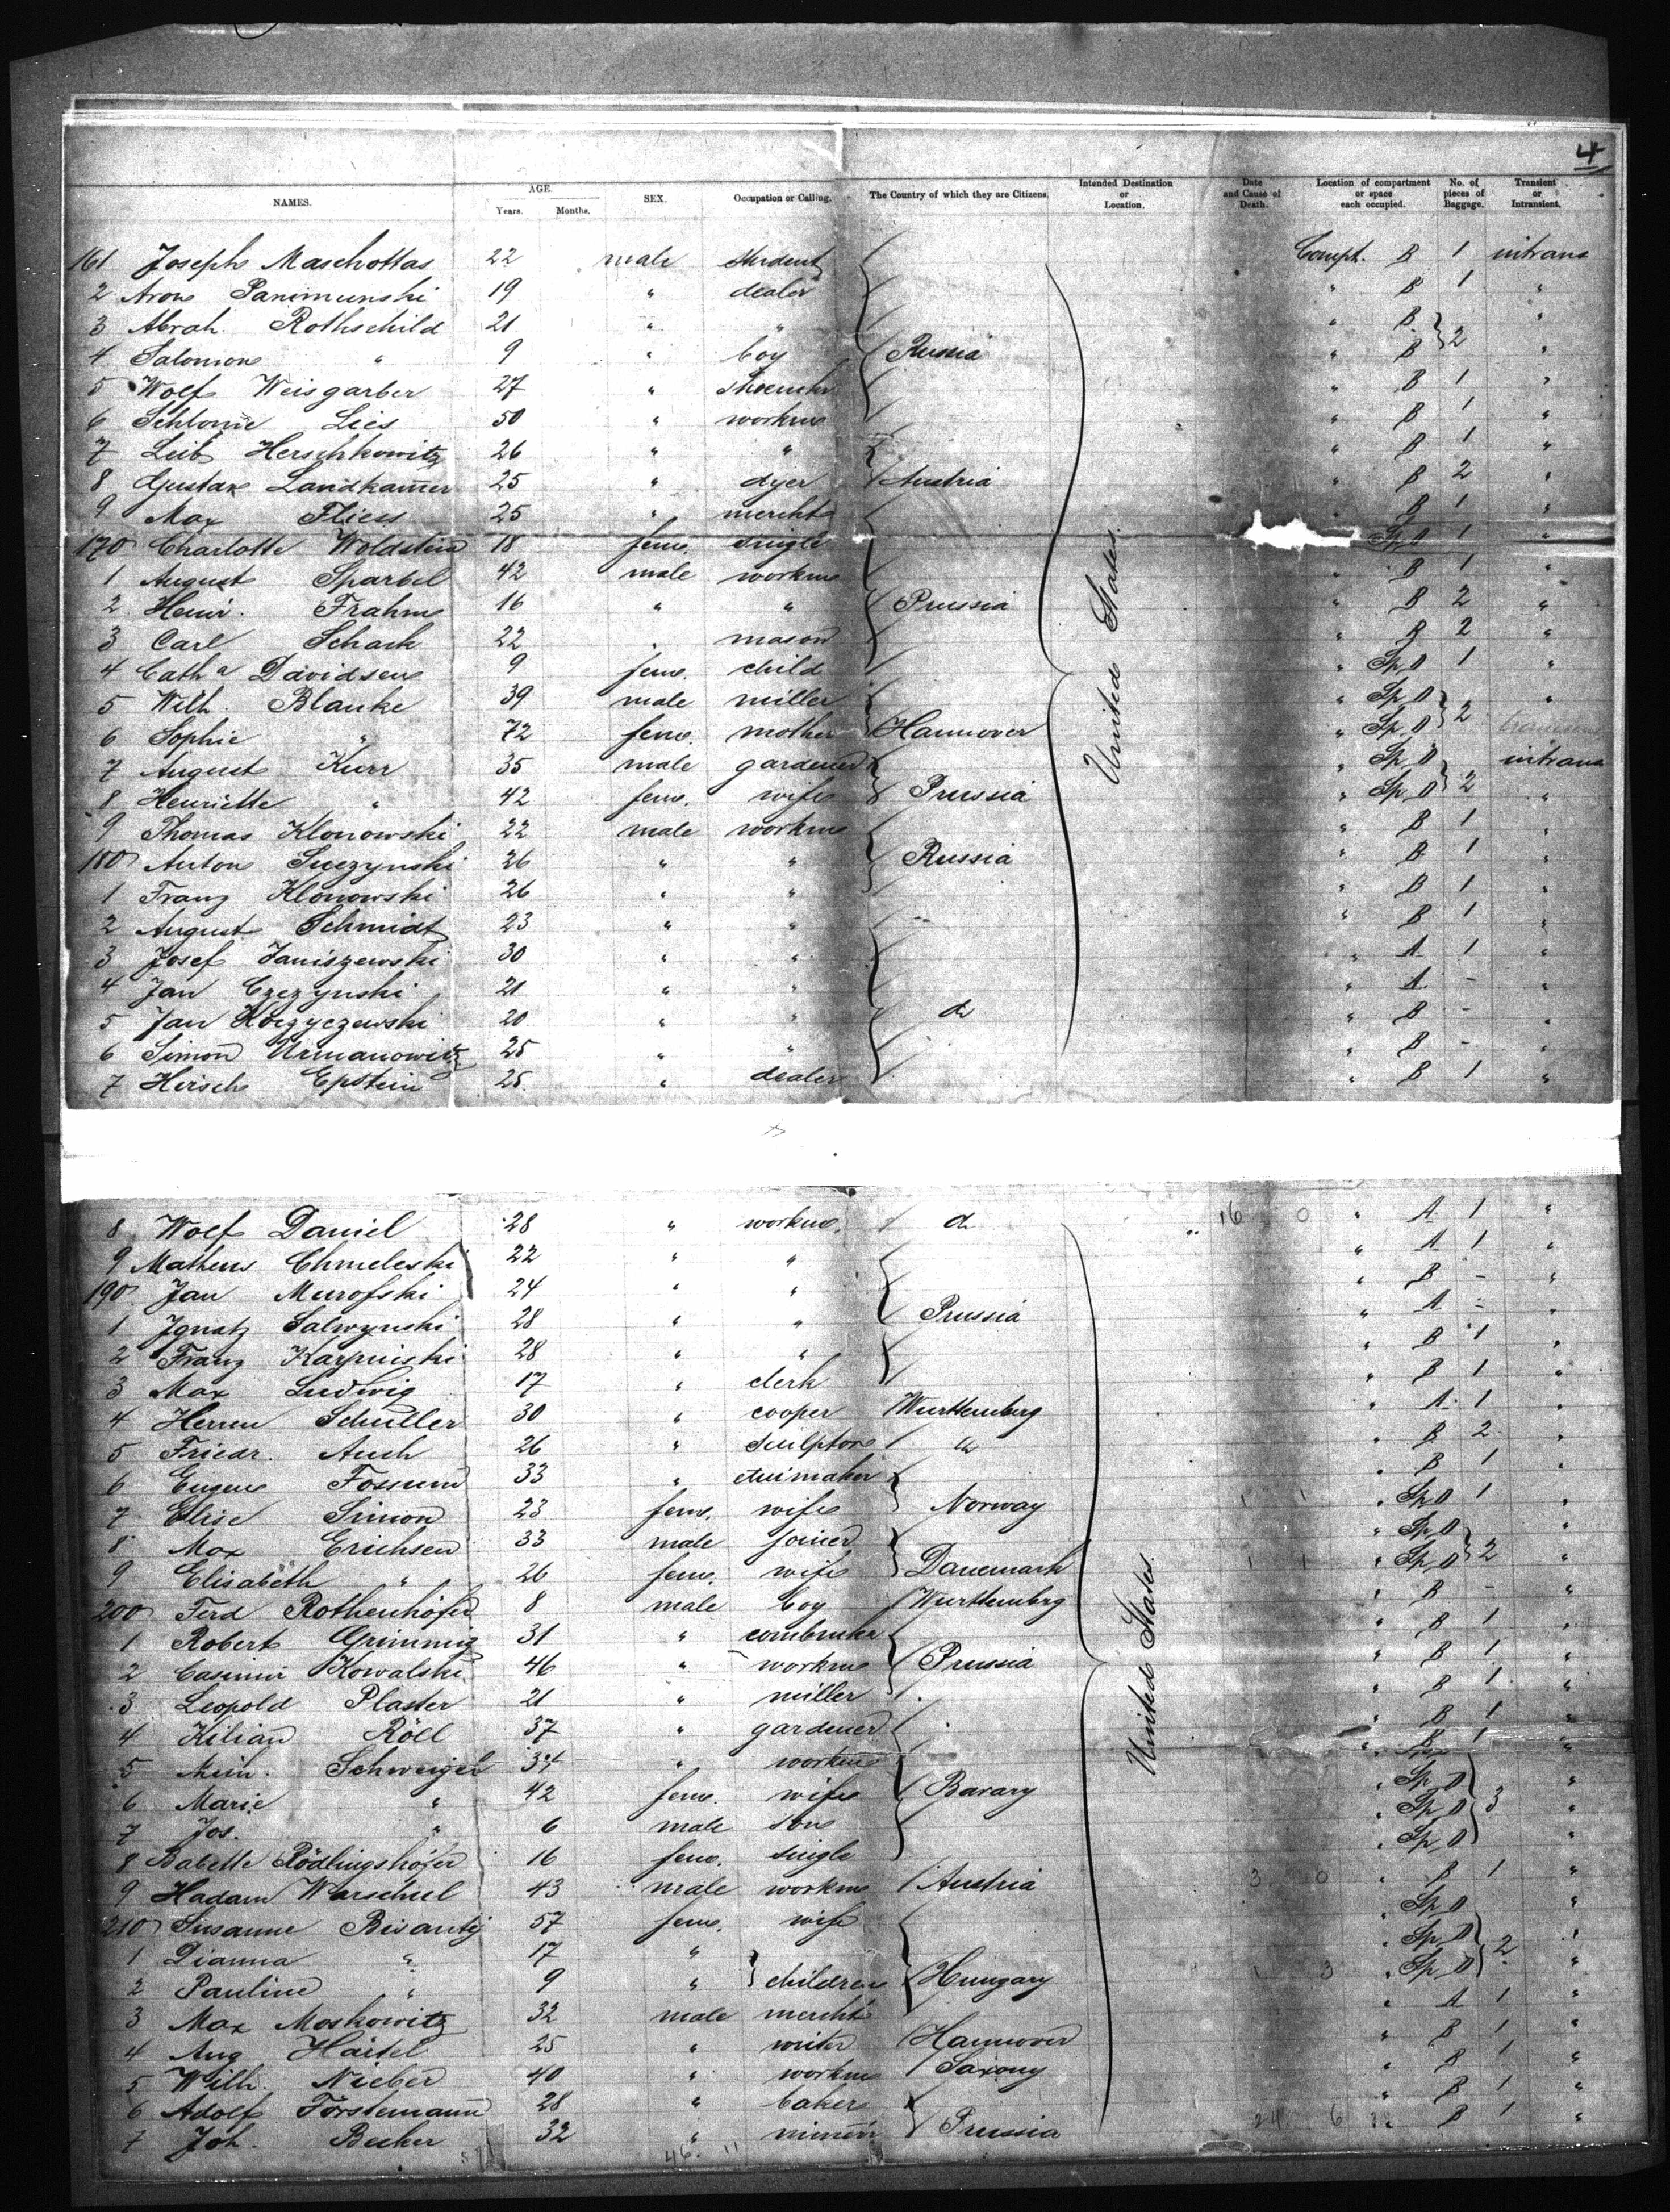 4
NAMES. AGE. Years. Months. SEX. Occupation or Calling. The Country of which they are Citizens. Intended Destination or Location. Date and Cause of Death. Location of compartment or space each occupied. No. of pieces of Baggage. Transient or Intransient.
161 Joseph Maschottas 22 male student Compt. B 1 intrans
2 Aron 19 " dealer " B 1 "
3 Abrah. Rothschild 21 " " " B "
4 Salomon " 9 " boy Russia " B 2 "
5 Wolf Weisgarber 27 " " B 1 "
6 Schlome Lies 50 " workm " B 1 "
7 Leib Herschkowitz 26 " " " B 1 "
8 Gustav Landkam̄er 25 " dyer Austria " B 2 "
9 Max Fliess 25 " mercht " B 1 "
170 Charlotte Woldstein 18 fem. single Sp. 1 "
1 August Sparbel 42 male workm " B 1 "
2 Heinr. Frahm 16 " " Prussia " B 2 "
3 Carl Schack 22 " mason " B 2 "
4 Cath a Davidsen 9 fem. child " Sp D 1 "
5 Wilh. Blanke 39 male miller " Sp D "
6 Sophie " 72 fem. mother Hannover " Sp D 2
7 August Kurr 35 male gardener " Sp D intrans
8 Henriette " 42 fem. wife Prussia " Sp D 2 "
9 Thomas Klonowski 22 male workm " B 1 "
180 Anton Suczynski 26 " " Russia " B 1 "
1 Franz Klonowski 26 " " " B 1 "
2 August Schmidt 23 " " " B 1 "
3 Josef Janiszewski 30 " " " A 1 "
4 Jan Czczynski 21 " " " A - "
5 Jan 20 " " do " B - "
6 Simon Urmanowitz 25 " " " B - "
7 Hirsch Epstein 25. " dealer " B 1 "
United States.
8 Wolf Daniel 28 " workm. do 16 0 " A 1 "
9 Mathews Chmeleski 22 " " " A 1 "
190 Jan Murofski 24 " " " B - "
1 Ignatz Salwynski 28 " " Prussia " A - "
2 Franz Karpinski 28 " " " B 1 "
3 Max Ludwig 17 " clerk " B 1 "
4 Herm Schuller 30 " cooper Wurttemberg " A 1 "
5 Friedr. Auch 26 " sculptor do " B 2 "
6 Eugene Fossum 33 " etuimaker " B 1 "
7 Elise Simon 23 fem. wife Norway " Sp D 1 "
8 Max Erichsen 33 male joiner " Sp D "
9 Elisabeth " 26 fem. wife Danemark " Sp D 2 "
200 Ferd Rothenhöfer 8 male boy Wurttembrg " B - "
1 Robert Grimmig 31 " " B 1 "
2 Casimir Kowalski 46 " workm Prussia " B 1 "
3 Leopold Plaster 21 " miller " B 1 "
4 Kilian Röll 37 " gardener " B 1 "
5 Schweiger 34 " workm "
6 Marie " 42 fem. wife Bavary " Sp D "
7 Jos. " 6 male son " Sp D 3 "
8 Babette Rödlingshöfer 16 fem. single " Sp D "
9 Hadam Warschul 43 male workm Austria 3 0 " B 1 "
210 Susanne Bisantz 57 fem. wife " Sp D
1 Dianna " 17 " " Sp D "
2 Pauline " 9 " children Hungary 3 " Sp D 2 "
3 Max Moskowitz 32 male mercht " A 1 "
4 Aug Härtel 25 " writer Hannover " B 1 "
5 Wilh. Nieber 40 " workm Saxony " B 1 "
6 Adolf Förstemann 28 " baker " B 1 "
7 Joh. Becker 32 " Prussia 24. 6 " B 1 "
United States.
46. 11